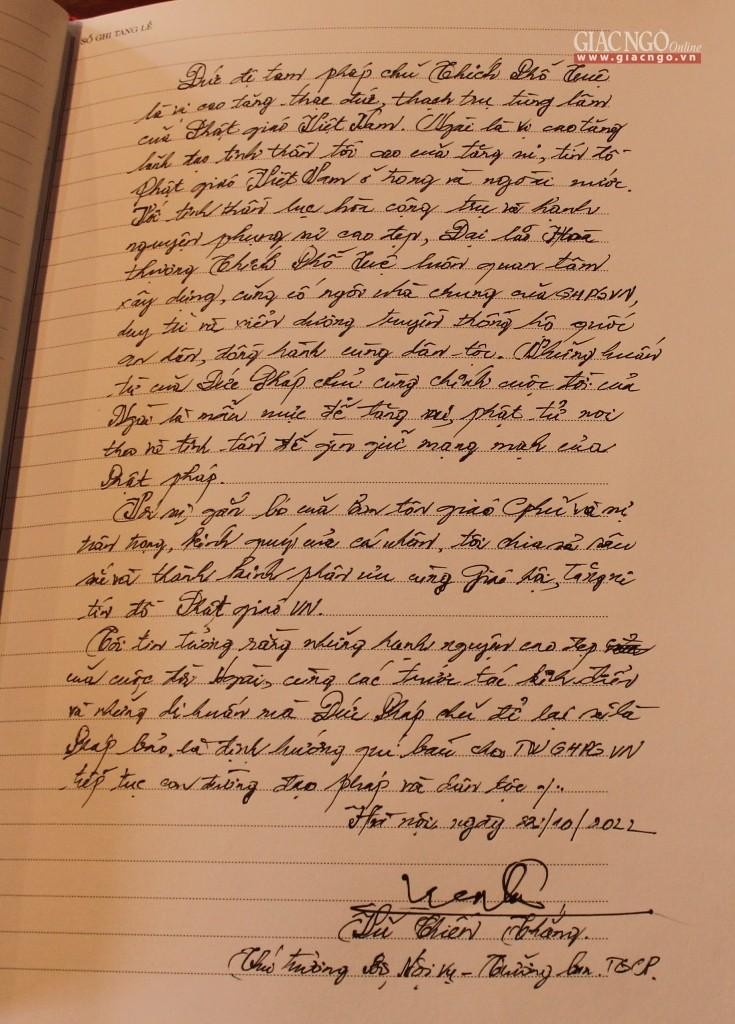 SỔ GHI TANG LỄ
GIÁC NGỘ Online
www.giacngo.vn
Đức đệ tam pháp chủ Thích Phổ Tuệ
là vị cao tăng thạc đức, thạch trụ tùng lâm
của Phật giáo Việt Nam. Ngài là vị cao tăng
lãnh đạo tinh thần tối cao của tăng ni, tín đồ
Phật giáo Việt Nam ở trong và ngoài nước.
Với tinh thần lục hòa cộng trụ và hạnh
nguyện phụng sự cao đẹp, Đại lão Hoà
thượng Thích Phổ Tuệ luôn quan tâm
xây dựng, củng cố ngôi nhà chung của GHPGVN,
duy trì và xiển dương truyền thống hộ quốc
an dân, đồng hành cùng dân tộc. Những huấn
từ của Đức Pháp chủ cùng chính cuộc đời của
Ngài là mẫu mực để tăng ni, phật tử noi
theo và tinh tấn để gìn giữ mạng mạch của
Phật pháp.
Với sự gắn bó của Ban tôn giáo Cphủ và sự
trân trọng, kính quý của cá nhân, tôi chia sẻ sâu
sắc và thành kính phân ưu cùng Giáo hội, Tăng ni
tín đồ Phật giáo VN.
Tôi tin tưởng rằng những hạnh nguyện cao đẹp
của cuộc đời Ngài, cùng các trước tác kinh điển
và những di huấn mà Đức Pháp chủ để lại sẽ là
Pháp bảo, là định hướng quí báu cho TW GHPGVN
tiếp tục con đường đạo pháp và dân tộc ./.
Hà nội, ngày 22/10/2022
Vũ Chiến Thắng
Thứ trưởng Bộ Nội vụ - Trưởng ban TGCP.